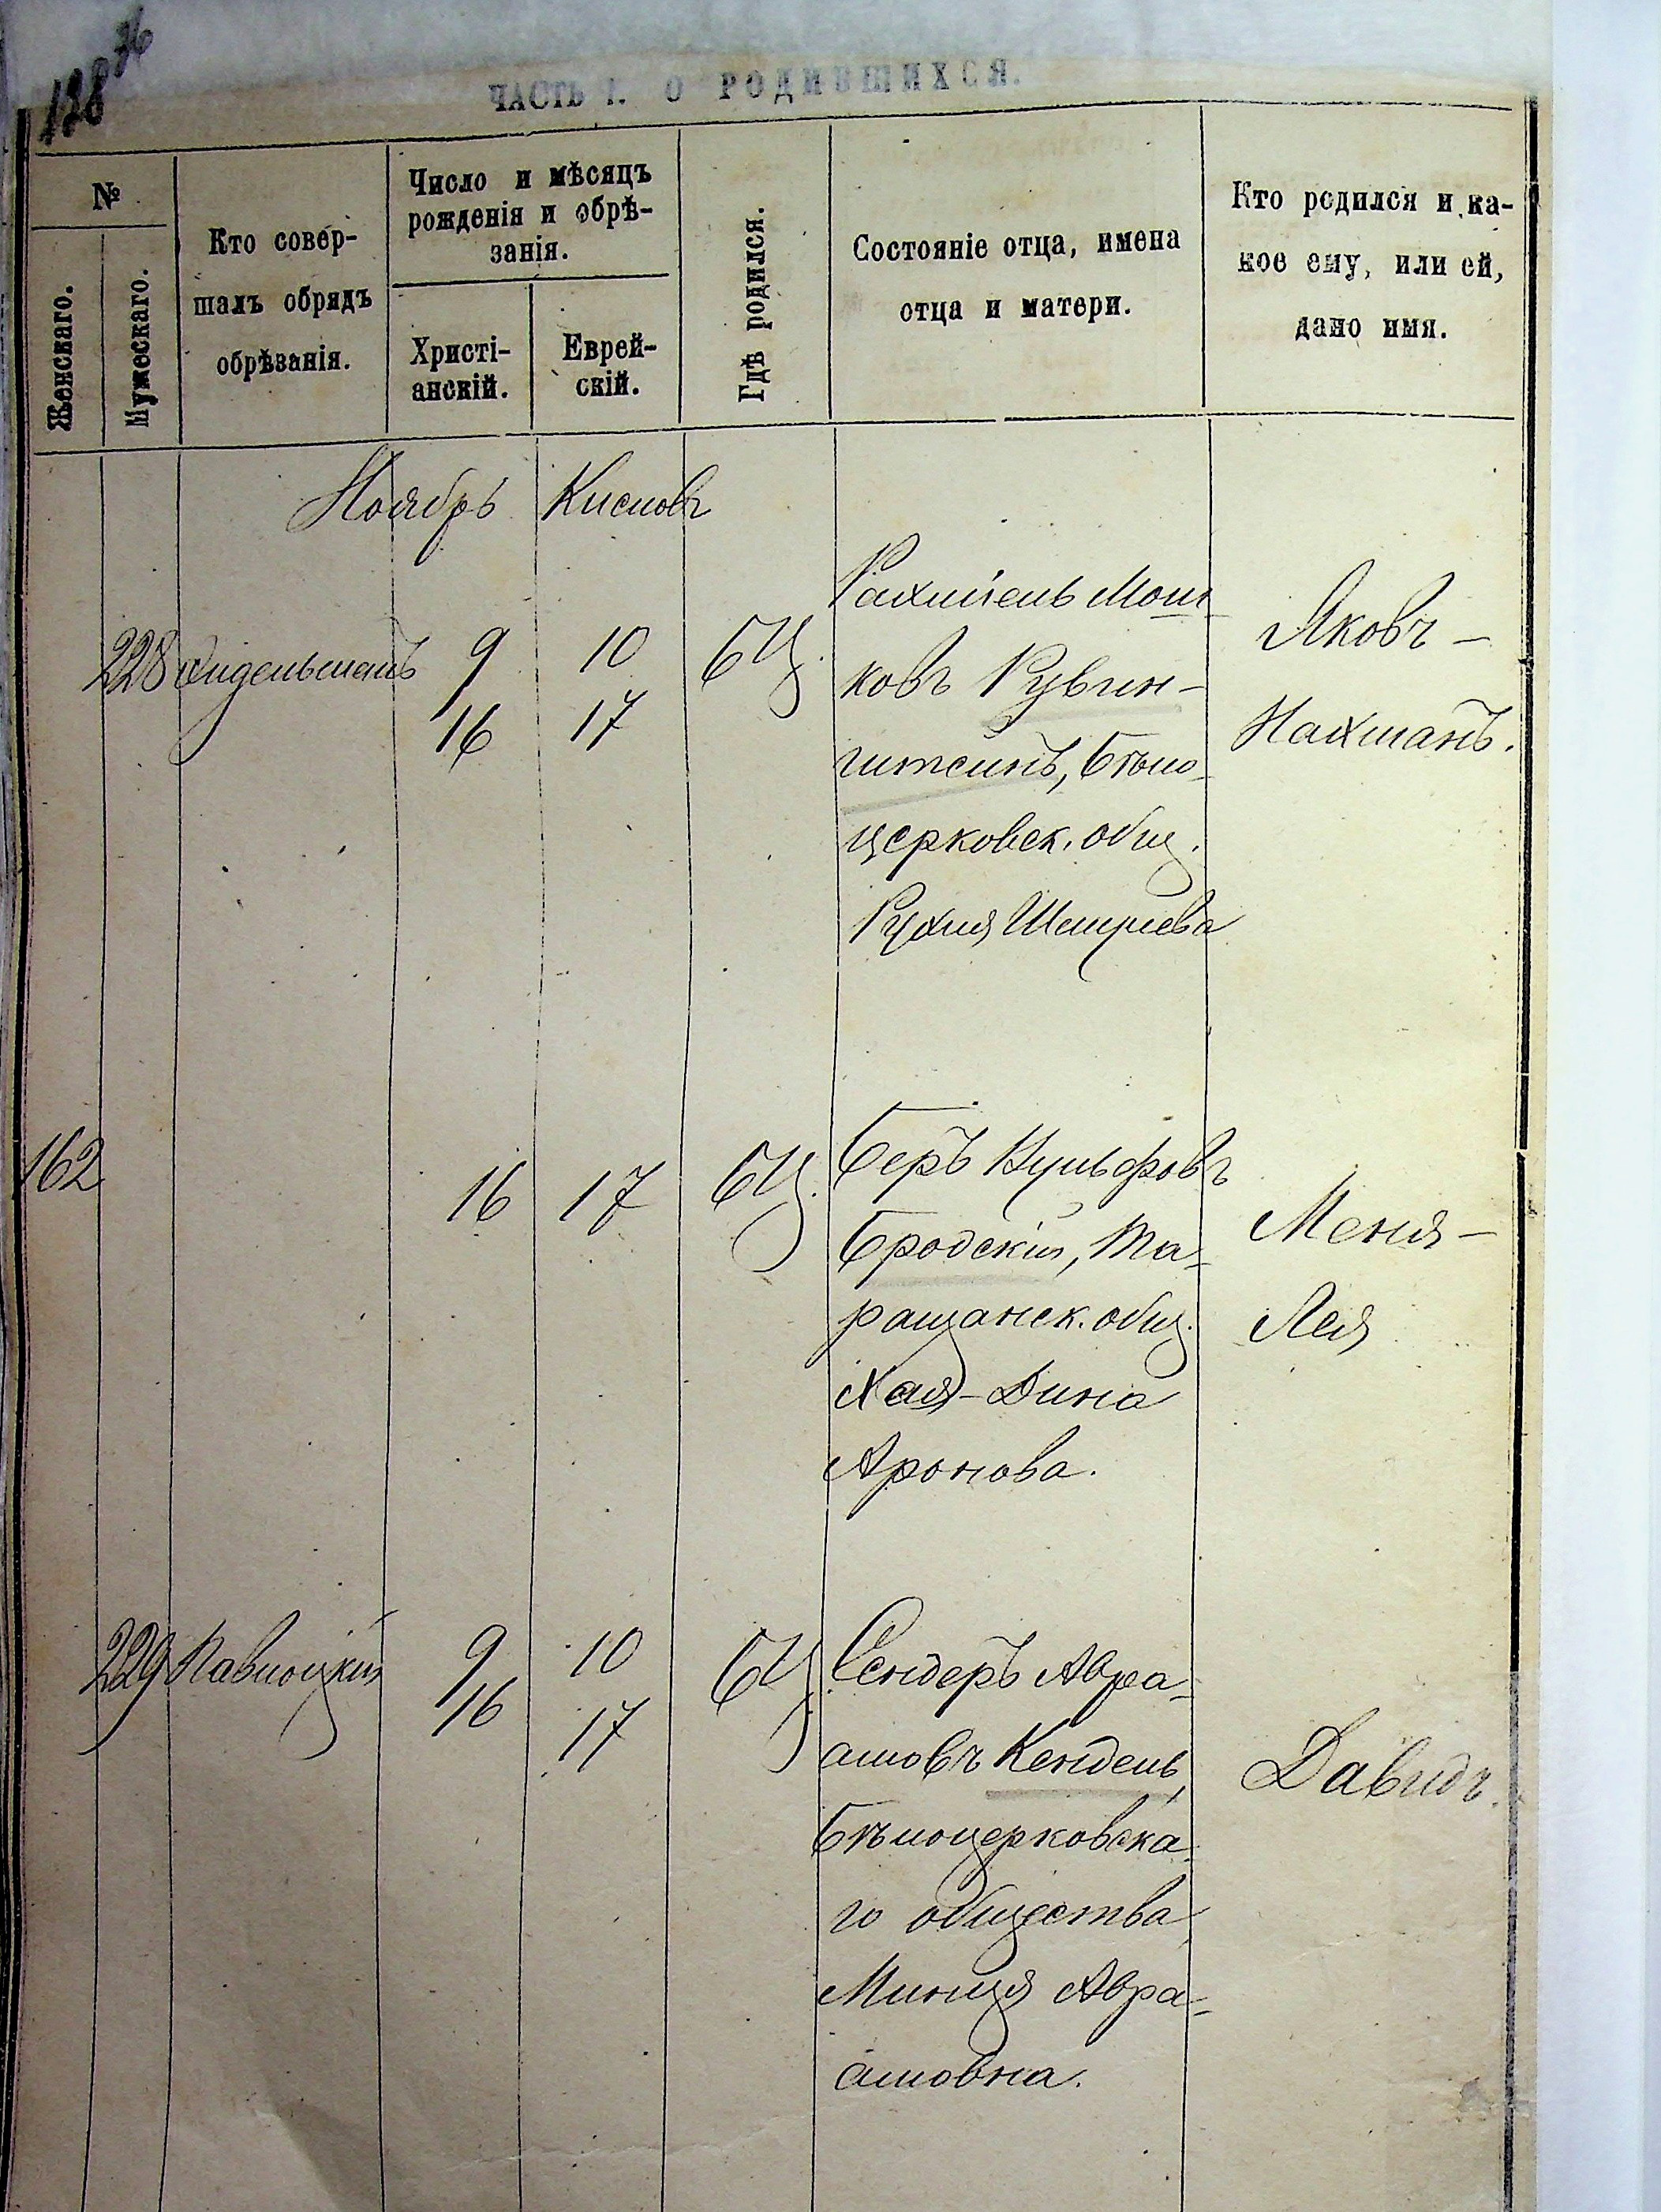 128
ЧАСТЬ I. О РОДИВШИХСЯ.
№
Женскаго.
Мужескаго.
Кто совер-
шалъ обрядъ
обрѣзанія.
Число и мѣсяцъ
рожденія и обрѣ-
занія.
Христі-
анскій.
Еврей-
скій.
Гдѣ родился.
Состояніе отца, имена
отца и матери.
Кто родился и ка-
кое ему, или ей,
дано имя.
Ноябрь Кислевъ
228
9 10
16 17
БЦ.
Рахміель Мош
ковъ Рувин-
штейнъ, Бѣло-
церковск. общ.
Рухля
Яковъ-
Нахманъ.
162
16 17
БЦ.
Беръ Вульфовъ
Бродскій, Та-
ращанск. общ.
Хая-Дина
Аронова.
Меня-
Лея
229 Павлоцкій
9 10
16 17
БЦ.
Сендеръ Авра-
амовъ Кендель,
Бѣлоцерковска-
го общества
Минця Авра-
амовна.
Давидъ.